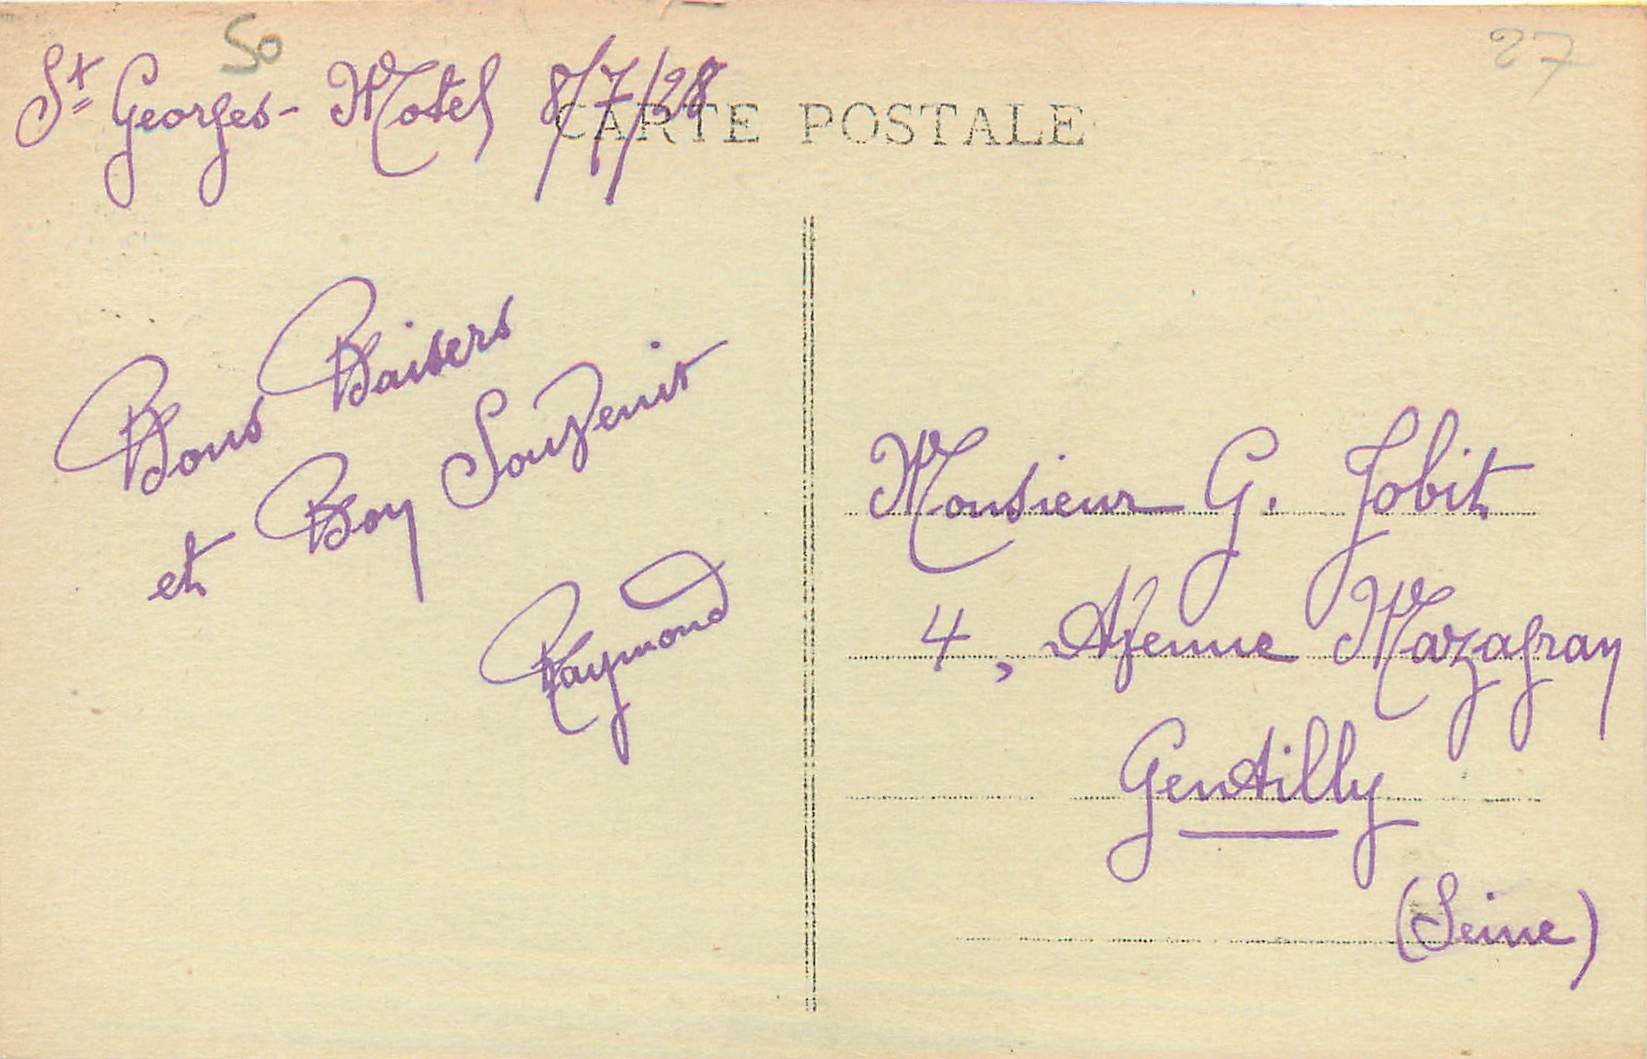 50
27
St Georges-Motel 8/7/28
CARTE POSTALE
Bons Baisers
et Bon Souvenir
Raymond
Monsieur G. Jobit
4, Avenue Mazagran
Gentilly
(Seine)